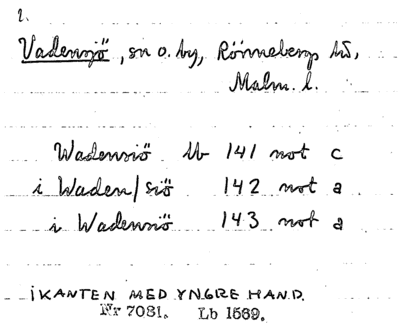 2.
Vadensjö, sn o. by, Rönnebergs hd,
Malm. l.
Wadensiö lb 141 not c
i Waden/siö 142 not a
i Wadensiö 143 not a
I KANTEN MED YNGRE HAND.
Nr 7081. Lb 1569.